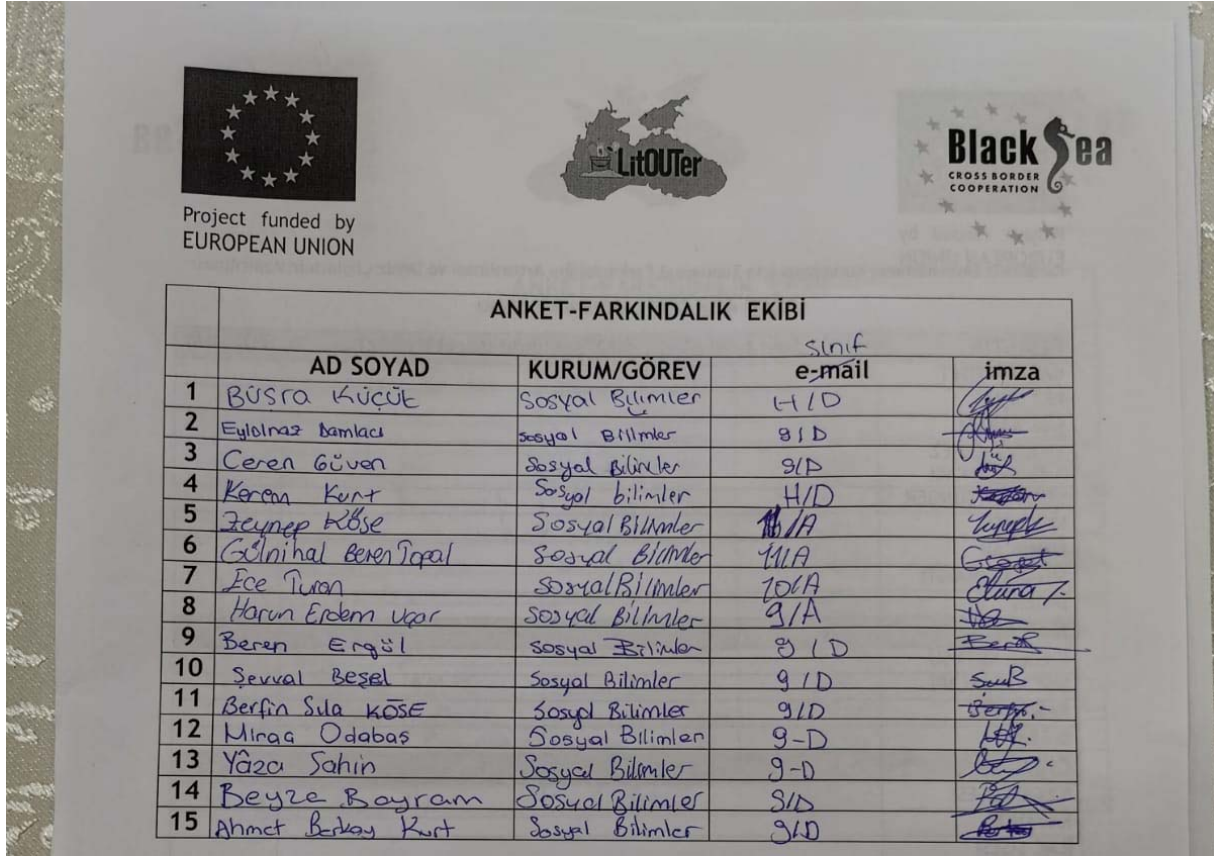 Project funded by
EUROPEAN UNION
LitOUTer
Black Sea
CROSS BORDER
COOPERATION
ANKET-FARKINDALIK EKİBİ
sınıf
AD SOYAD KURUM/GÖREV e-mail imza
1 Büşra Küçük Sosyal Bilimler H/D
2 Eylülnaz Damlacı sosyal Bilimler 9/D
3 Ceren Güven Sosyal Bilimler 9/D
4 Kerem Kurt Sosyal bilimler H/D
5 Zeynep Köse Sosyal Bilimler /A
6 Gülnihal Beren Topal Sosyal Bilimler 11/A
7 Ece Turan Sosyal Bilimler 10/A
8 Harun Erdem Uçar Sosyal Bilimler 9/A
9 Beren Ergül sosyal Bilimler 9/D
10 Şevval Beşel Sosyal Bilimler 9/D
11 Berfin Sıla KÖSE Sosyal Bilimler 9/D
12 Miraç Odabaş Sosyal Bilimler 9-D
13 Sahin Sosyal Bilimler 9-D
14 Beyza Bayram Sosyal Bilimler 9/D
15 Ahmet Berkay Kurt Sosyal Bilimler 9/D